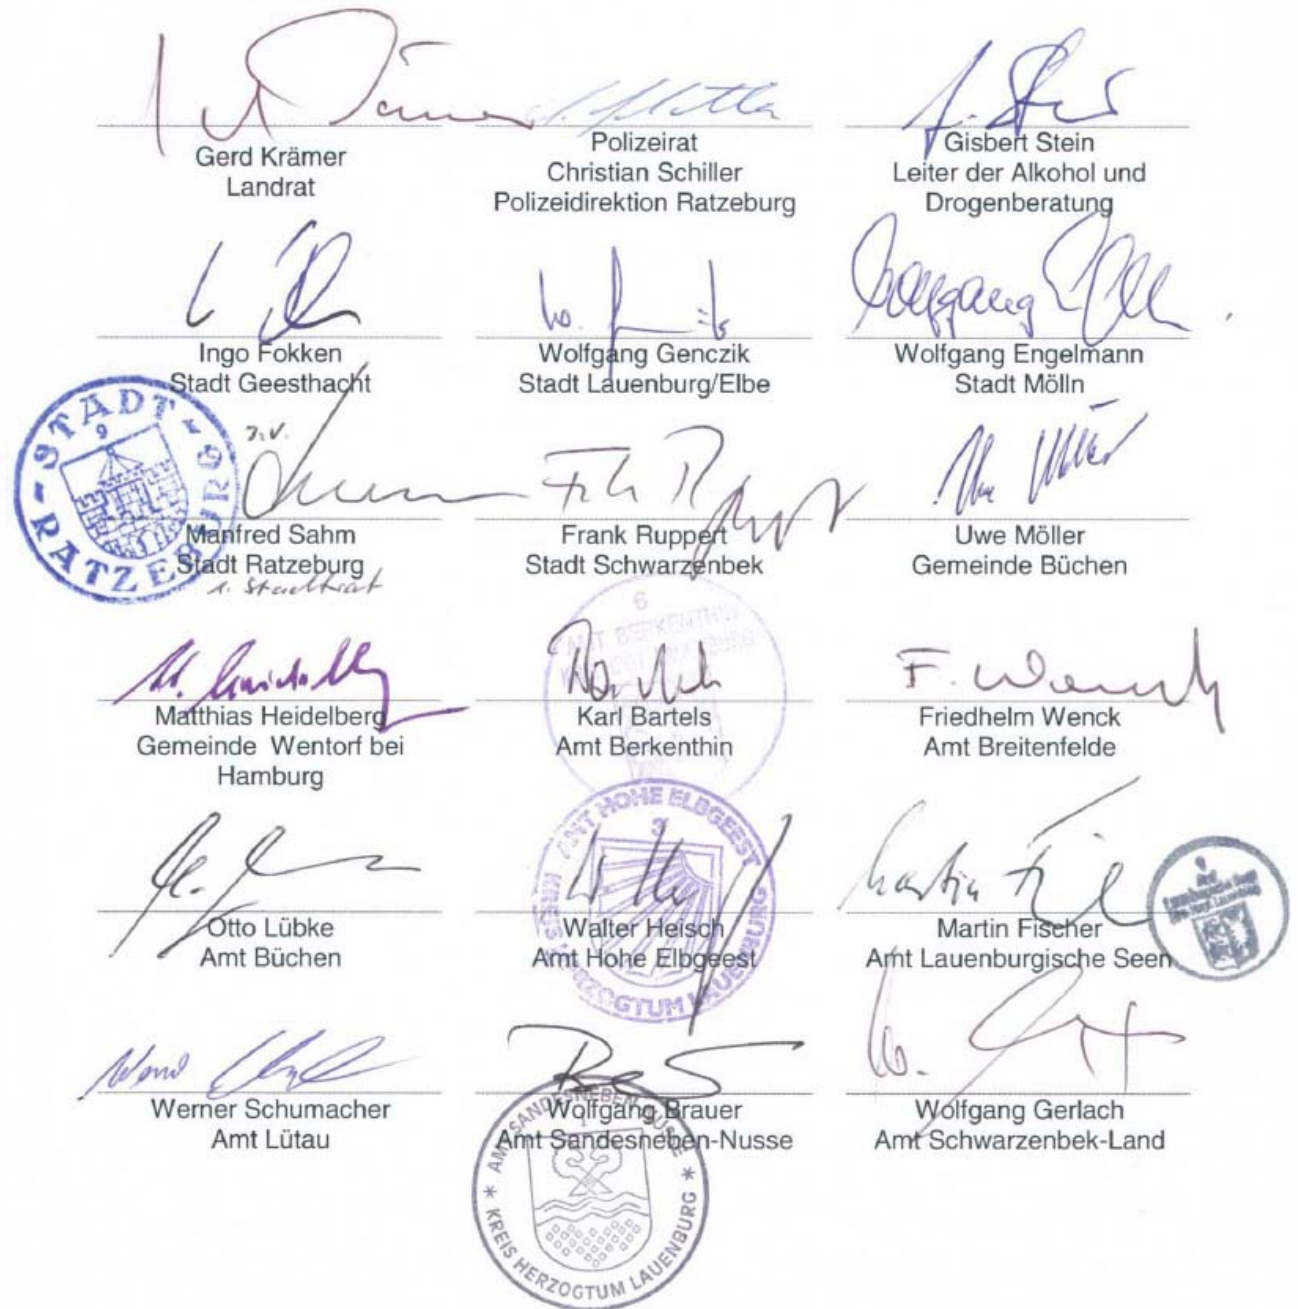 Gerd Krämer
Landrat
Polizeirat
Christian Schiller
Polizeidirektion Ratzeburg
Gisbert Stein
Leiter der Alkohol und
Drogenberatung
Ingo Fokken
Stadt Geesthacht
Wolfgang Genczik
Stadt Lauenburg/Elbe
Wolfgang Engelmann
Stadt Mölln
STADT
9
RATZEBURG
Manfred Sahm
Stadt Ratzeburg
1. Stadtrat
Frank Ruppert
Stadt Schwarzenbek
Uwe Möller
Gemeinde Büchen
Matthias Heidelberg
Gemeinde Wentorf bei
Hamburg
6
AMT BERKENTHIN
Karl Bartels
Amt Berkenthin
F. Wenck
Friedhelm Wenck
Amt Breitenfelde
Otto Lübke
Amt Büchen
AMT HOHE ELBGEEST
3
KREIS HERZOGTUM LAUENBURG
Walter Heisch
Amt Hohe Elbgeest
Martin Fischer
Amt Lauenburgische Seen
Werner Schumacher
Amt Lütau
Wolfgang Brauer
Amt Sandesneben-Nusse
AMT SANDESNEBEN-NUSSE
1
* KREIS HERZOGTUM LAUENBURG *
Wolfgang Gerlach
Amt Schwarzenbek-Land